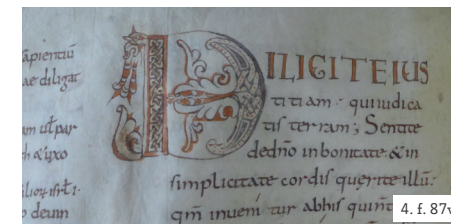 apientiū
ae diligat
DILIGITE IUS
titiam· qui iudica
tis terram; Sentite
dedño inbonitate & in
simplicitate cordis querite illū:
qm̄ inveni tur abhis
4. f. 87v